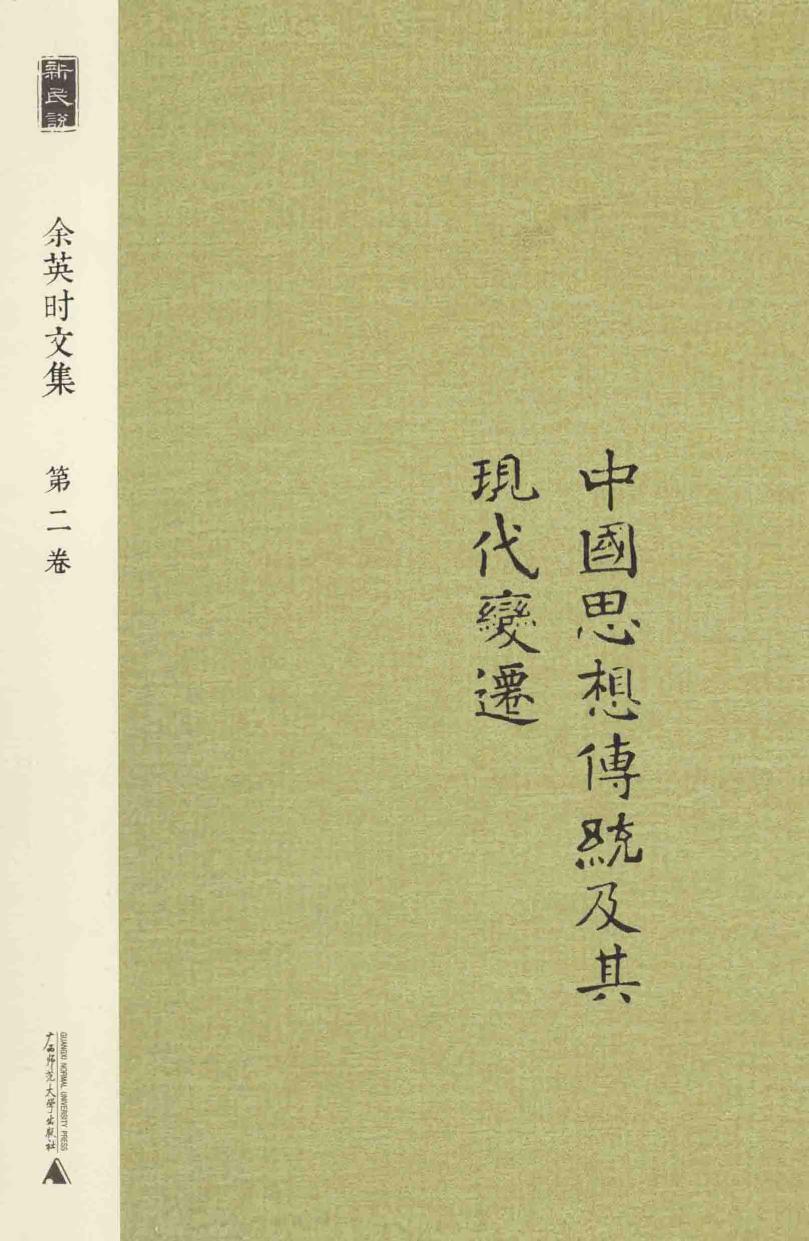 新民說
余英时文集
第二卷
中國思想傳統及其
現代變遷
广西师范大学出版社
GUANGXI NORMAL UNIVERSITY PRESS